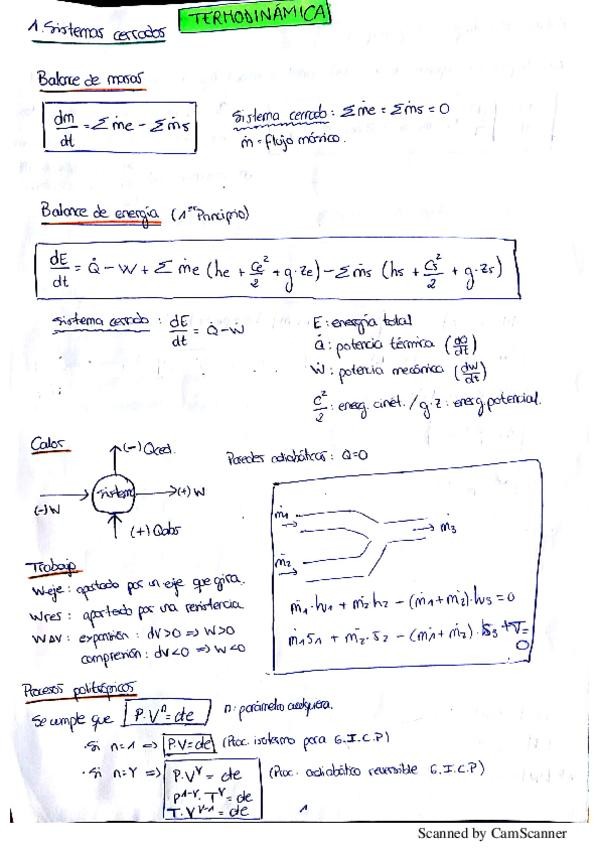 TERMODINÁMICA
1. Sistemas cerrados
Balance de masas
dm/dt = Σṁe - Σṁs
Sistema cerrado: Σṁe = Σṁs = 0
ṁ = flujo másico.
Balance de energía (1er Principio)
dE/dt = Q̇ - W + Σṁe (he + Ce²/2 + g·Ze) - Σṁs (hs + Cs²/2 + g·Zs)
Sistema cerrado: dE/dt = Q̇ - Ẇ
E: energía total
Q̇: potencia térmica (dQ/dt)
Ẇ: potencia mecánica (dW/dt)
C²/2: energ. cinét. / g·z: energ. potencial.
Calor
(-) Qced.
Paredes adiabáticas: Q=0
sistema
(-)W
(+) W
(+) Qabs
ṁ1
ṁ3
ṁ2
ṁ1·h1 + ṁ2 h2 - (ṁ1+ṁ2)·h3 = 0
ṁ1 S1 + ṁ2·S2 - (ṁ1+ṁ2)·S3 + σ = 0
Trabajo
Weje: aportado por un eje que gira.
Wres: aportado por una resistencia
WΔV: expansión: dV>0 => W>0
compresión: dV<0 => W<0
Procesos politrópicos
Se cumple que P·Vⁿ = cte
n: parámetro cualquiera.
· Si n=1 => P·V=cte (Proc. isotermo para G.I.C.P)
· Si n=γ => P·V^γ = cte (Proc. adiabático reversible G.I.C.P)
P^1-γ·T^γ = cte
T·V^γ-1 = cte
1
Scanned by CamScanner